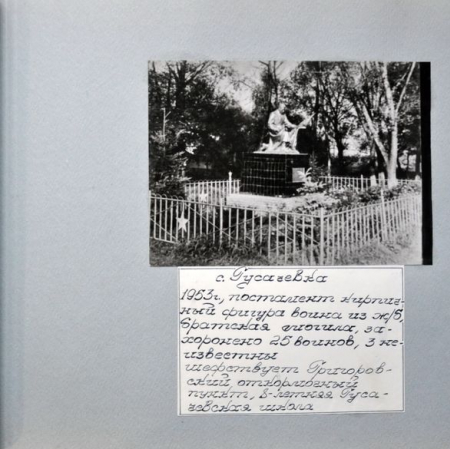 с. Гусачевка
1953г, постамент кирпич-
ный фигура воина из ж/б,
братская могила, за-
хоронено 25 воинов, 3 не-
известны
шефствует Григоров-
ский откормочный
пункт, 8-летняя Гуса-
чевская школа